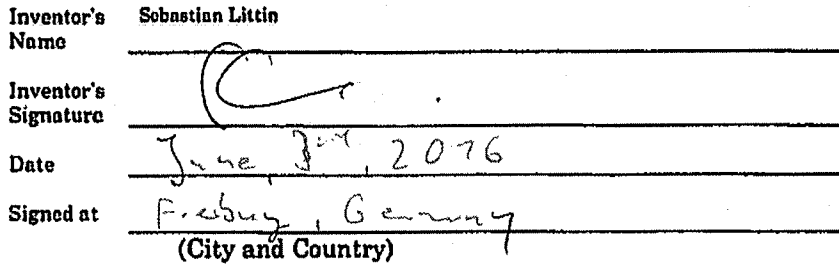 Inventor's Sebastian Littin
Name
Inventor's
Signature
Date June, 3rd, 2016
Signed at Freiburg, Germany
(City and Country)